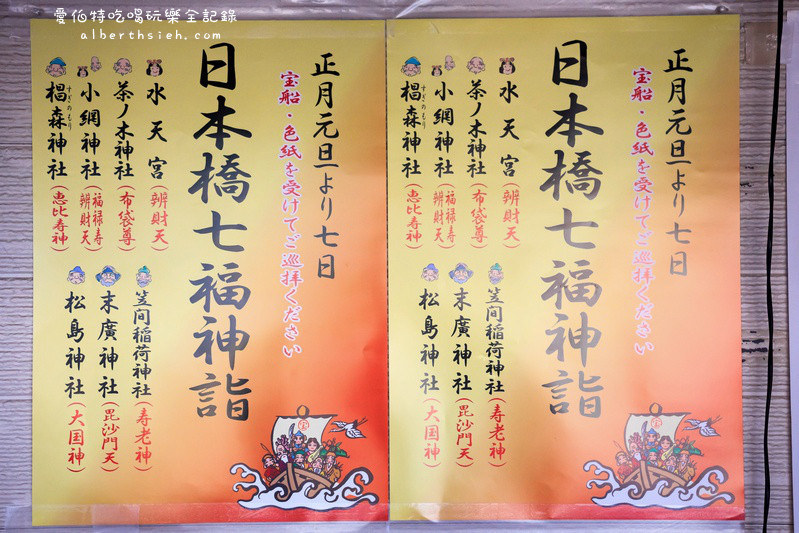 愛伯特吃喝玩樂全記錄
alberthsieh.com
正月元旦より七日
宝船・色紙を受けてご巡拝ください
日本橋七福神詣
水天宮（辨財天）
茶ノ木神社（布袋尊）
小網神社（福禄寿 辨財天）
椙森神社（恵比寿神）
すぎのもり
笠間稲荷神社（寿老神）
末廣神社（毘沙門天）
松島神社（大国神）
宝
正月元旦より七日
宝船・色紙を受けてご巡拝ください
日本橋七福神詣
水天宮（辨財天）
茶ノ木神社（布袋尊）
小網神社（福禄寿 辨財天）
椙森神社（恵比寿神）
すぎのもり
笠間稲荷神社（寿老神）
末廣神社（毘沙門天）
松島神社（大国神）
宝